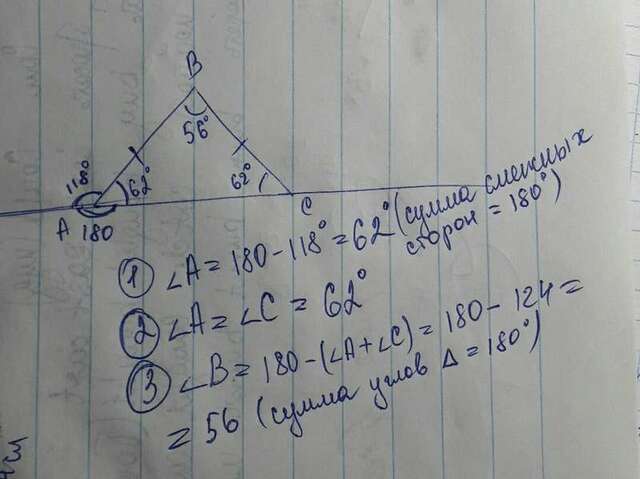 B
56°
118°
62°
62°
A
180
C
① ∠A = 180 - 118° = 62° (сумма смежных
сторон = 180°)
② ∠A = ∠C = 62°
③ ∠B = 180 - (∠A + ∠C) = 180 - 124 =
= 56 (сумма углов Δ = 180°)